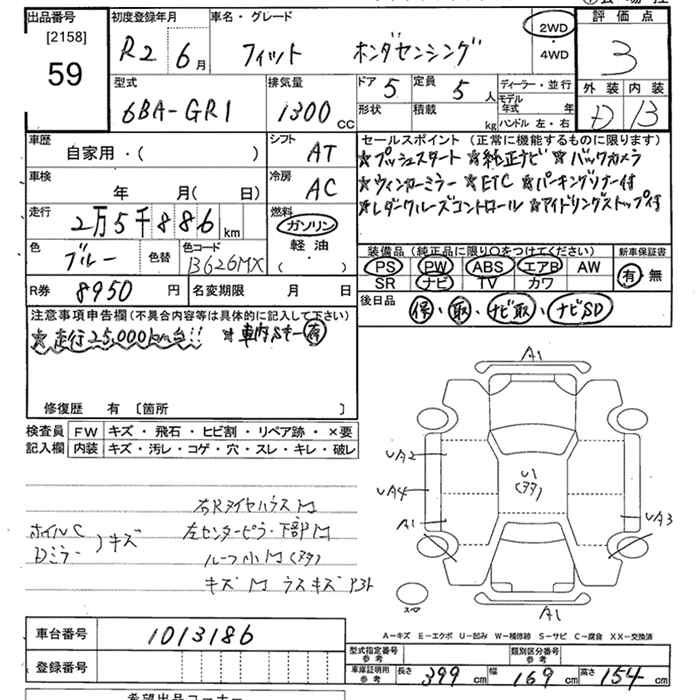 出品番号 初度登録年月 車名・グレード 2WD 評価点
[2158] R2 6月 フィット ホンダセンシング ・ 3
59 4WD
型式 排気量 ドア 5 定員 5人 ディーラー・並行 外装 内装
6BA-GR1 1300cc 形状 積載 kg モデル年式 年 D B
ハンドル 左・右
車歴 シフト セールスポイント (正常に機能するものに限ります)
自家用・( ) AT ☆プッシュスタート ☆純正ナビ ☆バックカメラ
車検 冷房 ☆ウィンカーミラー ☆ETC ☆パーキングソナー付
年 月( 日) AC ☆レダークルーズコントロール ☆アイドリングストップ付
走行 燃料
2万5千886km ガソリン
色 色替 色コード 軽油 装備品 (純正品に限り○をつけてください) 新車保証書
ブルー B626MX ・( ) PS PW ABS エアB AW 有・無
SR ナビ TV カワ
R券 8950円 名変期限 月 日 後日品 保・取・ナビ取・ナビSD
注意事項申告欄 (不具合内容等は具体的に記入して下さい)
☆走行25,000km台!! ☆車内Sキー有
修復歴 有 〔箇所 〕
検査員 FW キズ・飛石・ヒビ割・リペア跡・×要
記入欄 内装 キズ・汚レ・コゲ・穴・スレ・キレ・破レ
A1
UA2
U1
UA4 (ヌタ)
A1 UA3
スペア
A1
右RタイヤハウスM
ホイルC 左センターピラー下部M
Dミラー )キズ ルーフ小M(ヌタ)
キズM ラスキズアト
A-キズ E-エクボ U-凹み W-補修跡 S-サビ C-腐食 XX-交換済
車台番号 1013186
登録番号 型式指定番号 参考 類別区分番号 参考
車庫証明用 参考 長さ 399cm 幅 169cm 高さ 154cm
希望出品コーナー